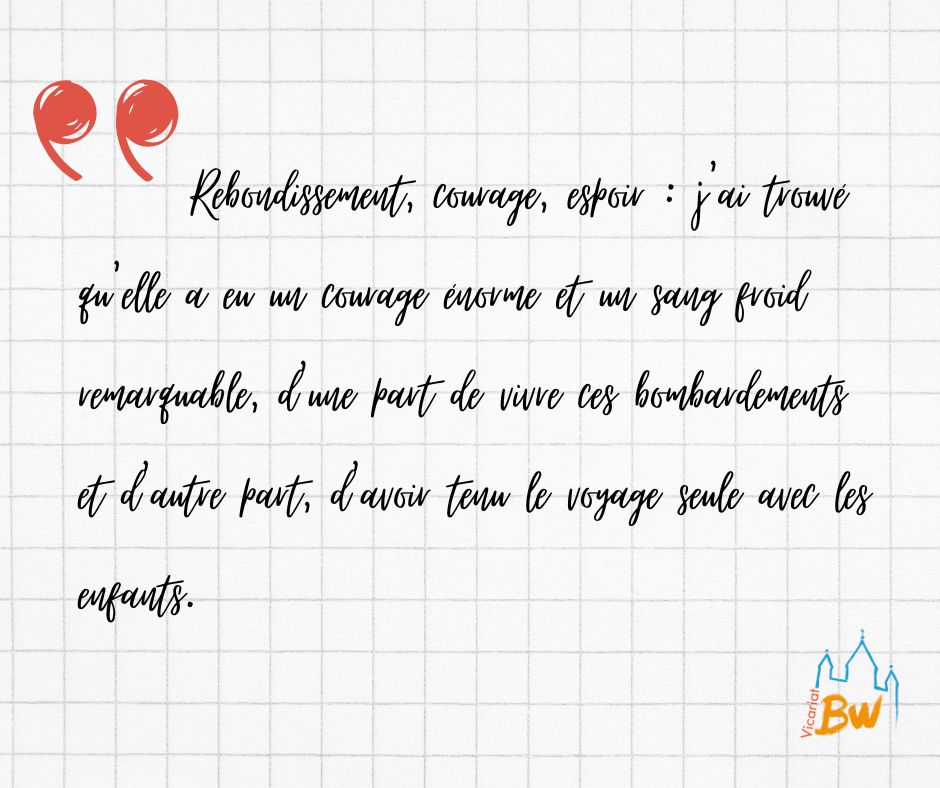 Rebondissement, courage, espoir : j'ai trouvé
qu'elle a eu un courage énorme et un sang froid
remarquable, d'une part de vivre ces bombardements
et d'autre part, d'avoir tenu le voyage seule avec les
enfants.
Vicariat
BW